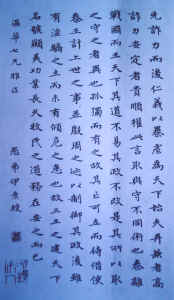 先詐力而後仁義以暴虐為天下始夫并兼者高
詐力安定者貴順權此言取與守不同術也秦離
戰國而王天下其道不易其政不改是其所以取
之守之者異也孤獨而有之故其亡可立而待借使
秦王計上世之事並殷周之迹以制御其政後雖
有淫驕之主而未有傾危之患也故三王之建天下
名號顯美功業長久牧民之道務在安之而已